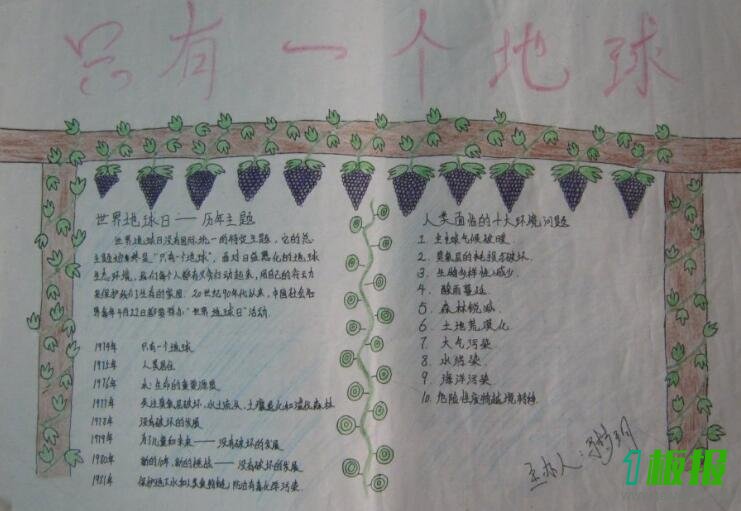 只有一个地球
世界地球日——历年主题
世界地球日没有国际统一的特定主题，它的总
主题始终是“只有一个地球”。面对日益恶化的地球
生态环境，我们每个人都有义务行动起来，用自己的
来保护我们生存的家园。20世纪90年代以来，中国社会各
界每年4月22日都举办“世界地球日”活动.
1974年 只有一个地球
1975年 人类居住
1976年 水：生命的重要源泉
1977年 关注臭氧层破坏、水土流失、土壤退化和滥伐森林
1978年 没有破坏的发展
1979年 为了儿童和未来——没有破坏的发展
1980年 新的10年，新的挑战——没有破坏的发展
1981年 保护地下水和人类食物链，防治有毒化学污染.
人类面临的十大环境问题
1. 全球气候变暖
2. 臭氧层的耗损与破坏.
3. 生物多样性减少.
4. 酸雨蔓延
5. 森林锐减.
6. 土地荒漠化
7. 大气污染
8. 水污染.
9. 海洋污染.
10. 危险性废物越境转移
主办人：
1板报